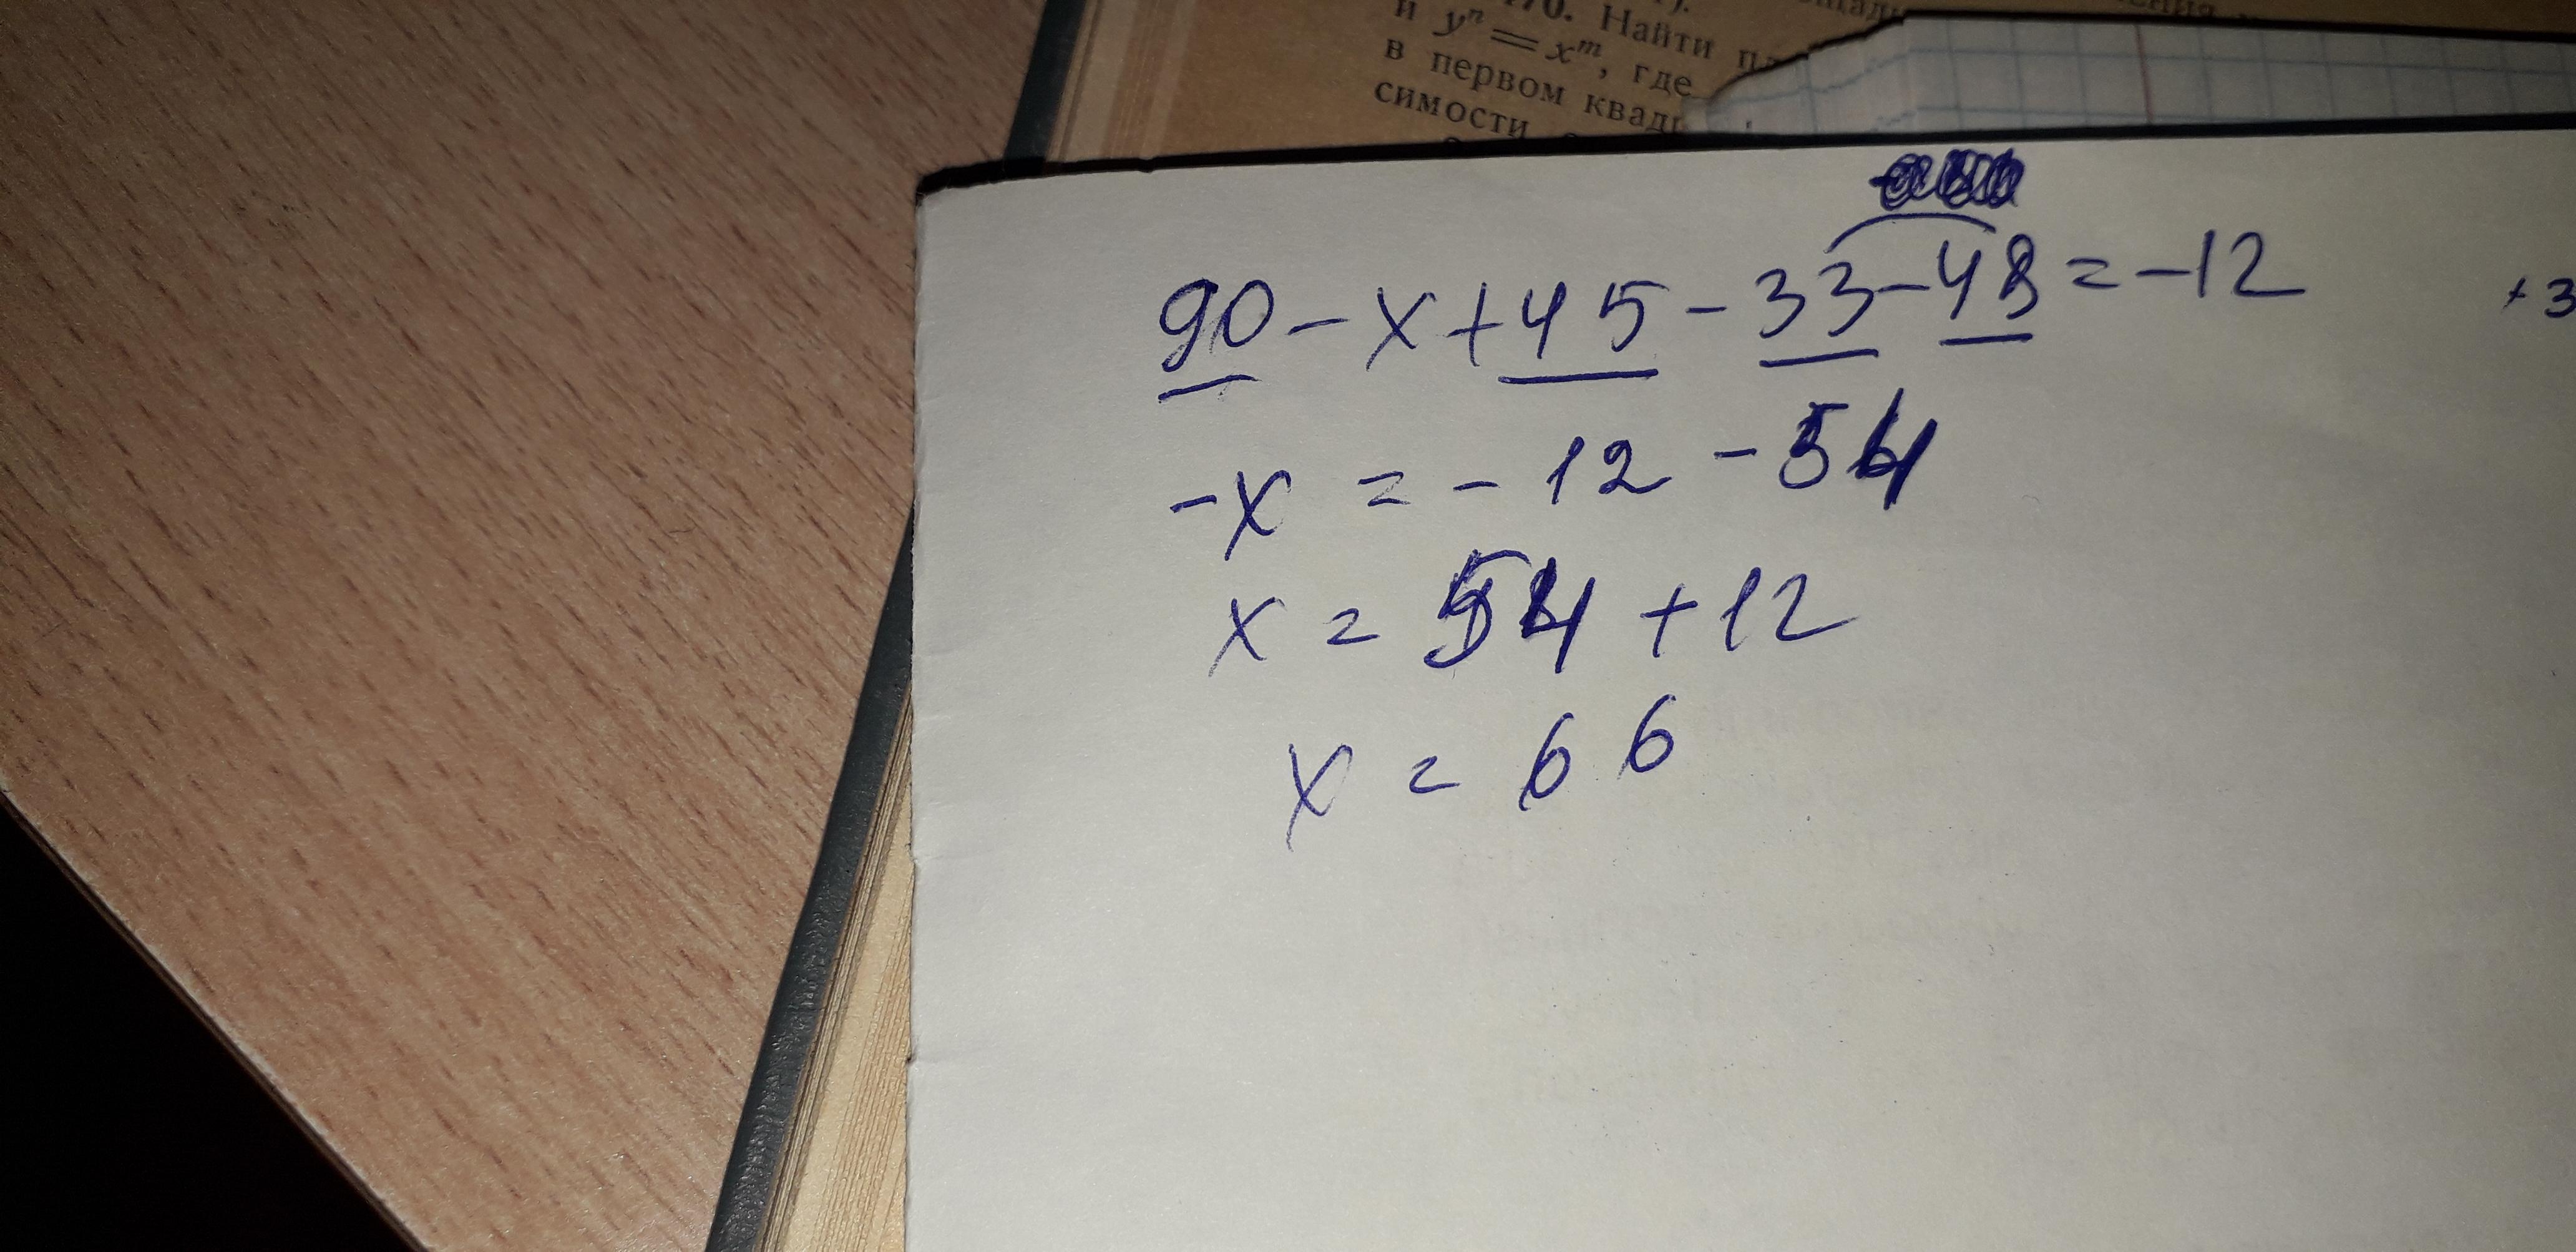 470. Найти
и yⁿ = xᵐ, где
в первом
симости
90 - x + 45 - 33 - 48 = -12
+3
-x = -12 - 54
x = 54 + 12
x = 66